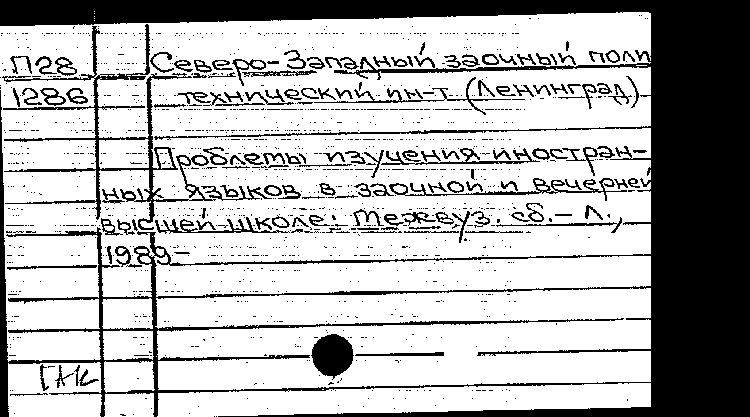 П28 Северо-Западный заочный поли
1286 технический ин-т (Ленинград)
Проблемы изучения иностран-
ных языков в заочной и вечерней
высшей школе: Межвуз. сб. – Л.,
1989–
ГАК